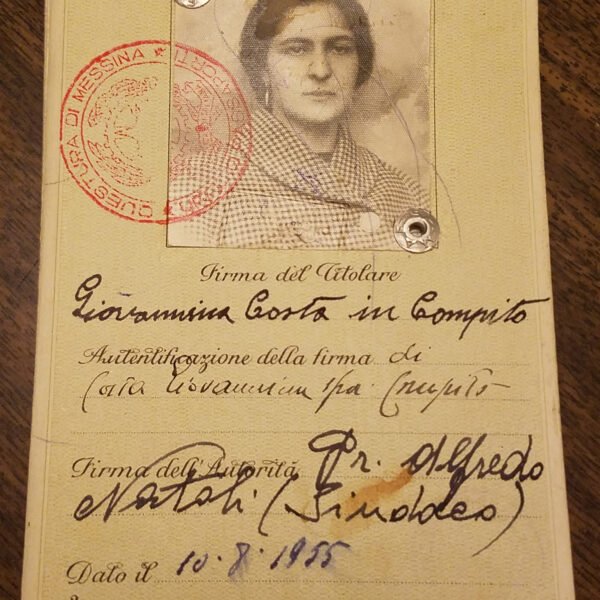 QUESTURA DI MESSINA
Firma del Titolare
Giovannina Costa in Compito
Autentificazione della firma di
Costa Giovannina spa. Compito
Firma dell'Autorità Dr. Alfredo
Natoli (Sindaco)
Dato il 10.8.1955